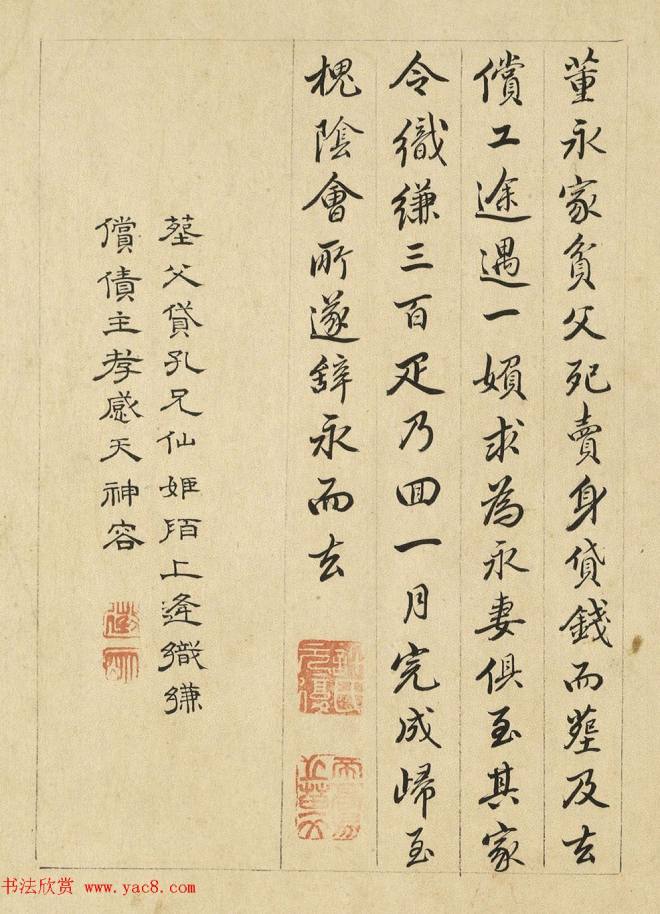 董永家貧父死賣身貸錢而塟及去
償工途遇一婦求為永妻俱至其家
令織縑三百疋乃回一月完成歸至
槐陰會所遂辞永而去
塟父貸孔兄仙姬陌上逢織縑
償債主孝感天神容
书法欣赏 www.yac8.com